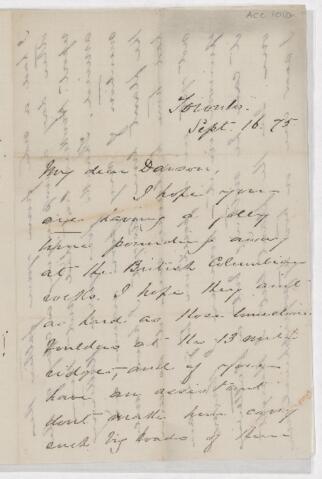 ACC 1010
Toronto.
Sept. 16. 75
My dear Dawson,
I hope you
are having a jolly
time pounding away
at the British Columbian
rocks. I hope they aint
as hard as those
boulders at the 13 mile
ridge, and if you
have an assistant
dont make him carry
such big loads of them